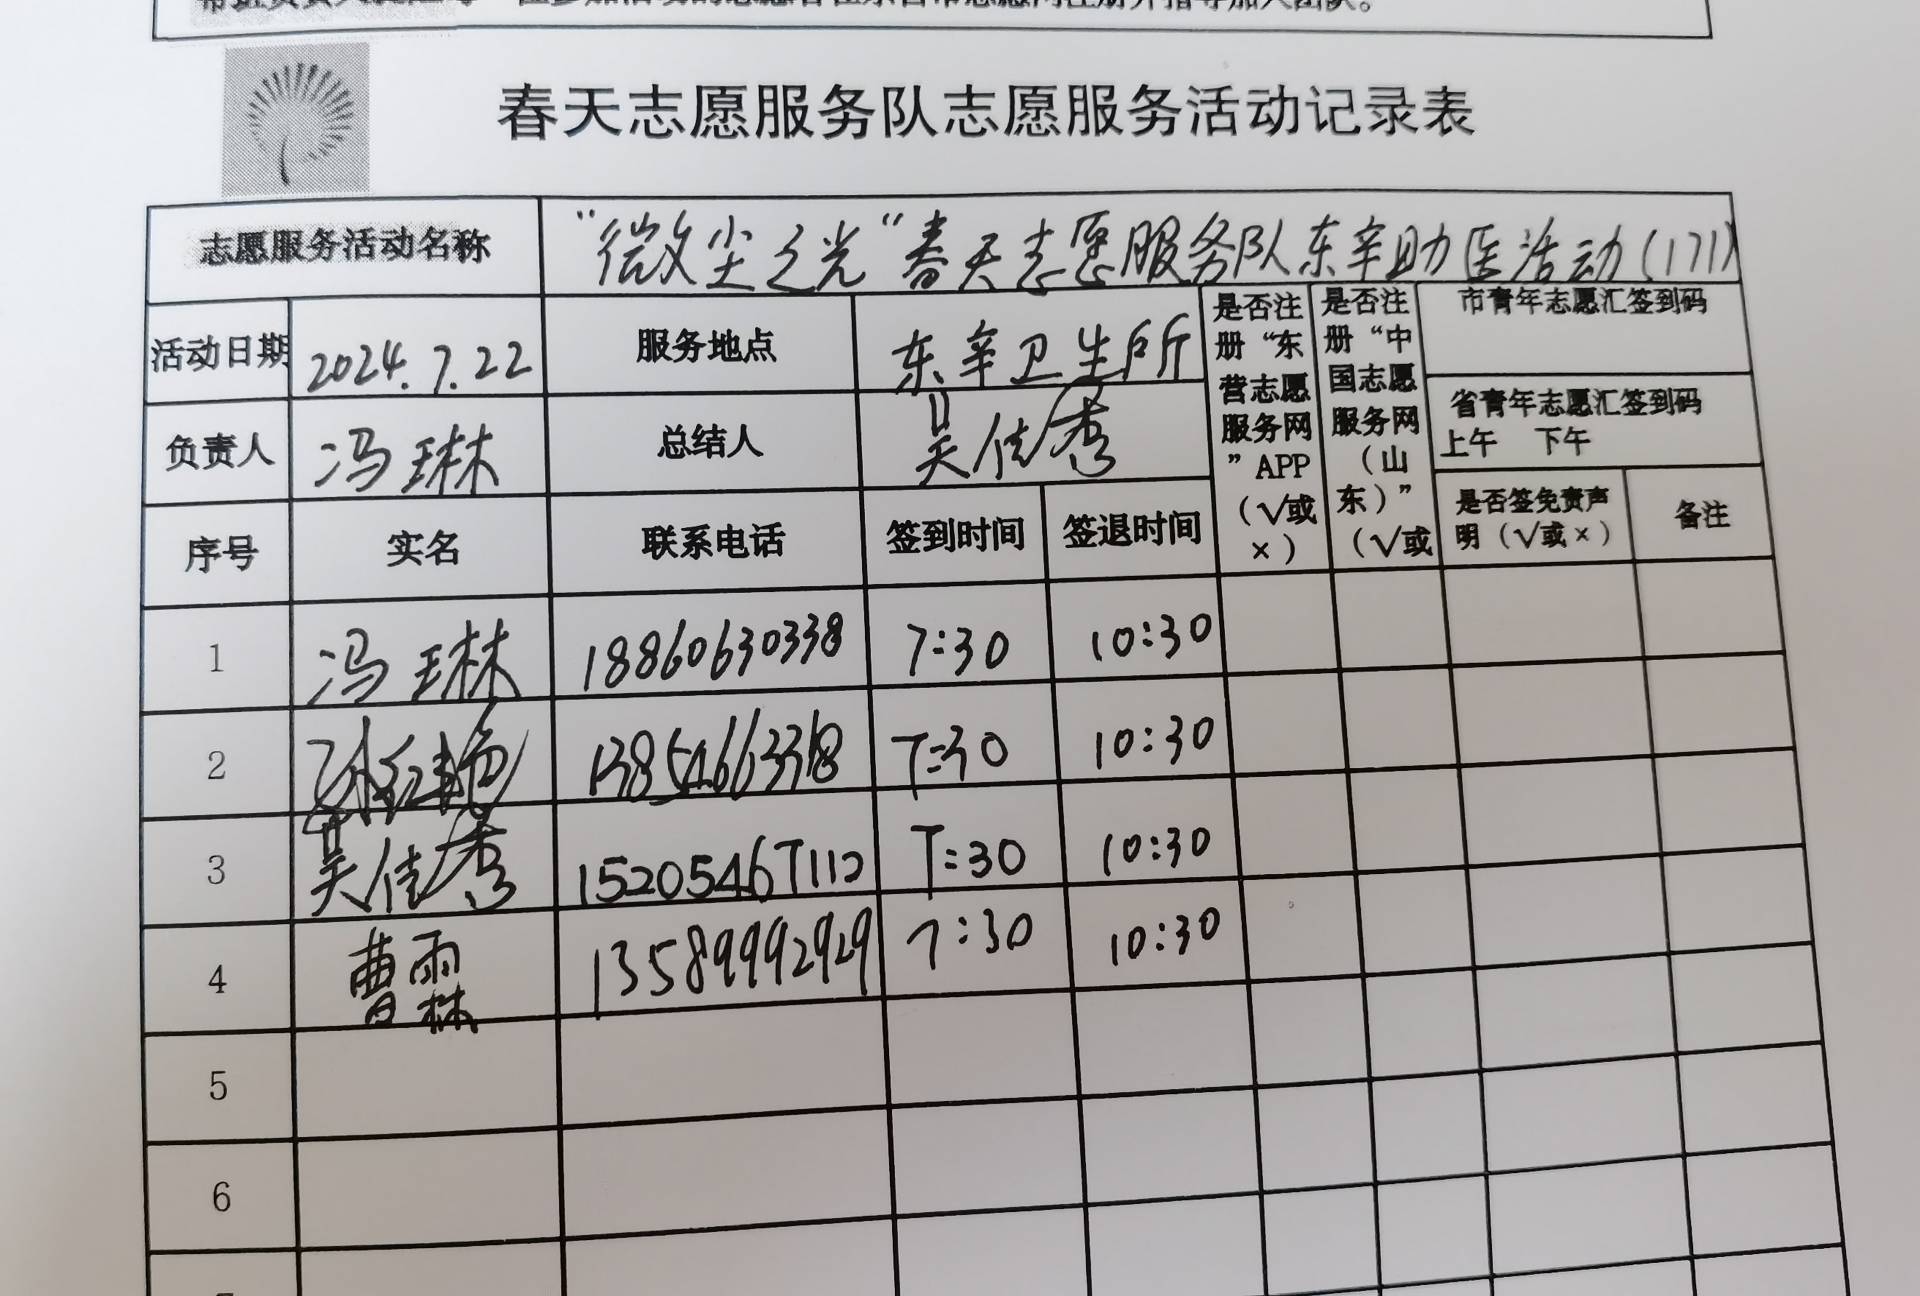 春天志愿服务队志愿服务活动记录表
志愿服务活动名称 “微尘之光“春天志愿服务队东辛助医活动(171)
活动日期 2024.7.22 服务地点 东辛卫生所
是否注册“东营志愿服务网”APP（√或×）
是否注册“中国志愿服务网（山东）”（√或
市青年志愿汇签到码
省青年志愿汇签到码
上午 下午
负责人 冯琳 总结人 吴佳秀
序号 实名 联系电话 签到时间 签退时间 是否签免责声明（√或×） 备注
1 冯琳 18860630338 7:30 10:30
2 孙红艳 13854663318 7:30 10:30
3 吴佳秀 15205467112 7:30 10:30
4 曹霖 13589992929 7:30 10:30
5
6